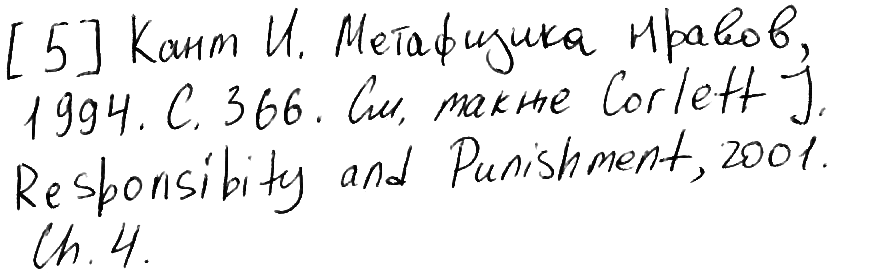 [5] Кант И. Метафизика нравов,
1994. С. 366. См. также Corlett J.
Responsibity and Punishment, 2001.
Ch. 4.